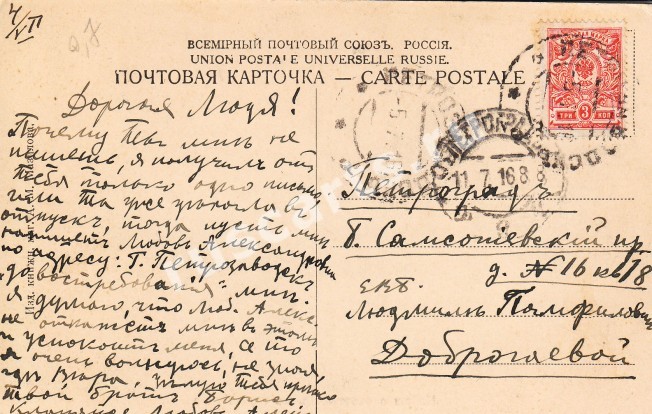 4/VII
ВСЕМІРНЫЙ ПОЧТОВЫЙ СОЮЗЪ. РОССІЯ.
UNION POSTALE UNIVERSELLE RUSSIE.
ПОЧТОВАЯ КАРТОЧКА — CARTE POSTALE
Дорогая Люся!
Почему ты мнѣ не
пишешь, я получилъ отъ
тебя только одно письмо
или ты уже уѣхала въ
отпускъ, тогда пусть мнѣ
напишетъ Любовь Александровна
по адресу: Г. Петрозаводскъ
до востребованія мнѣ.
я думаю, что Люб. Алекс.
не откажетъ мнѣ въ этомъ
и успокоитъ меня, а то
я очень волнуюсь, не зная,
гдѣ Вѣра. Цѣлую тебя крѣпко
твой братъ Борисъ.
Любовь Алекс
Петроградъ
Б. Самсоніевскій пр
д. № 16 кв 18
Людмилѣ Памфиловнѣ
Доброгаевой
11 7 16 8
ТРИ 3 КОП